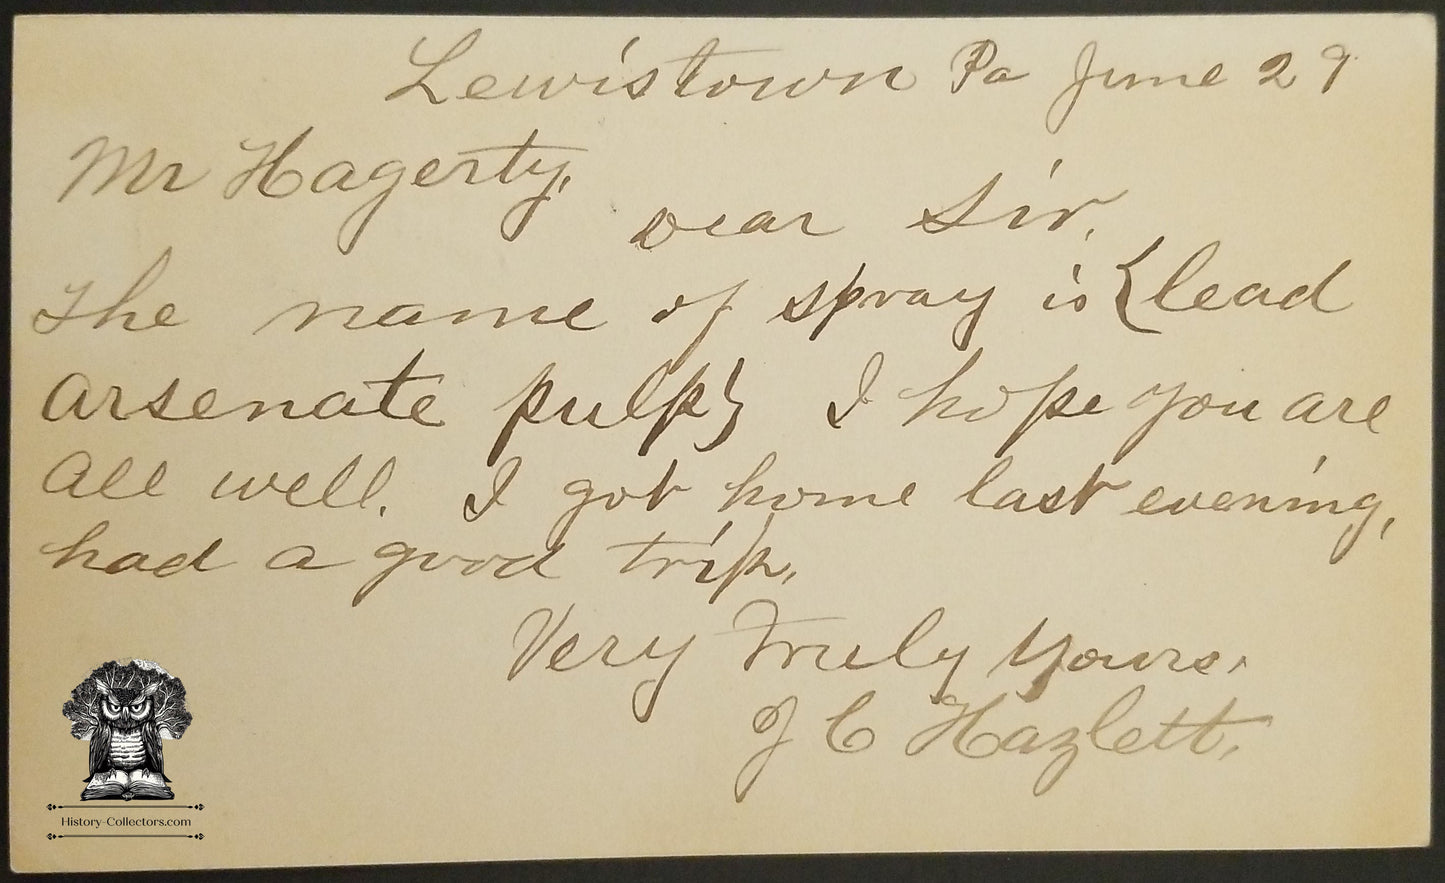 Lewistown Pa June 29
Mr Hagerty,
Dear Sir,
The name of spray is {lead
arsenate pulp} I hope you are
all well. I got home last evening,
had a good trip.
Very Truly Yours.
J C Hazlett.
History-Collectors.com